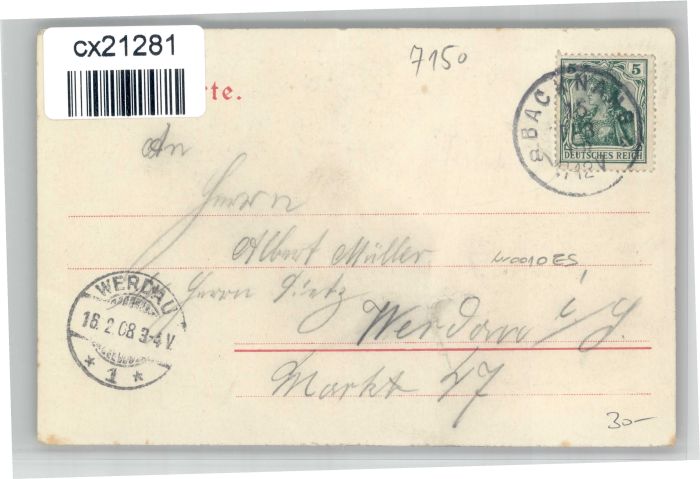 cx21281
7150
rte.
5 5
DEUTSCHES REICH
BACKNANG
12V
An
Herrn
Albert Müller
W0010ES
Herrn Dietz
Werdau i/S.
Markt 27
WERDAU
16.2.08 3-4V.
* 1 *
30-